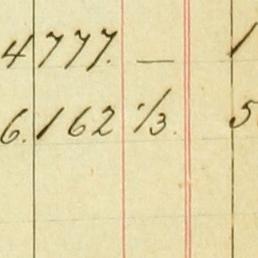 4777. — 1
6.162 1/3. 5